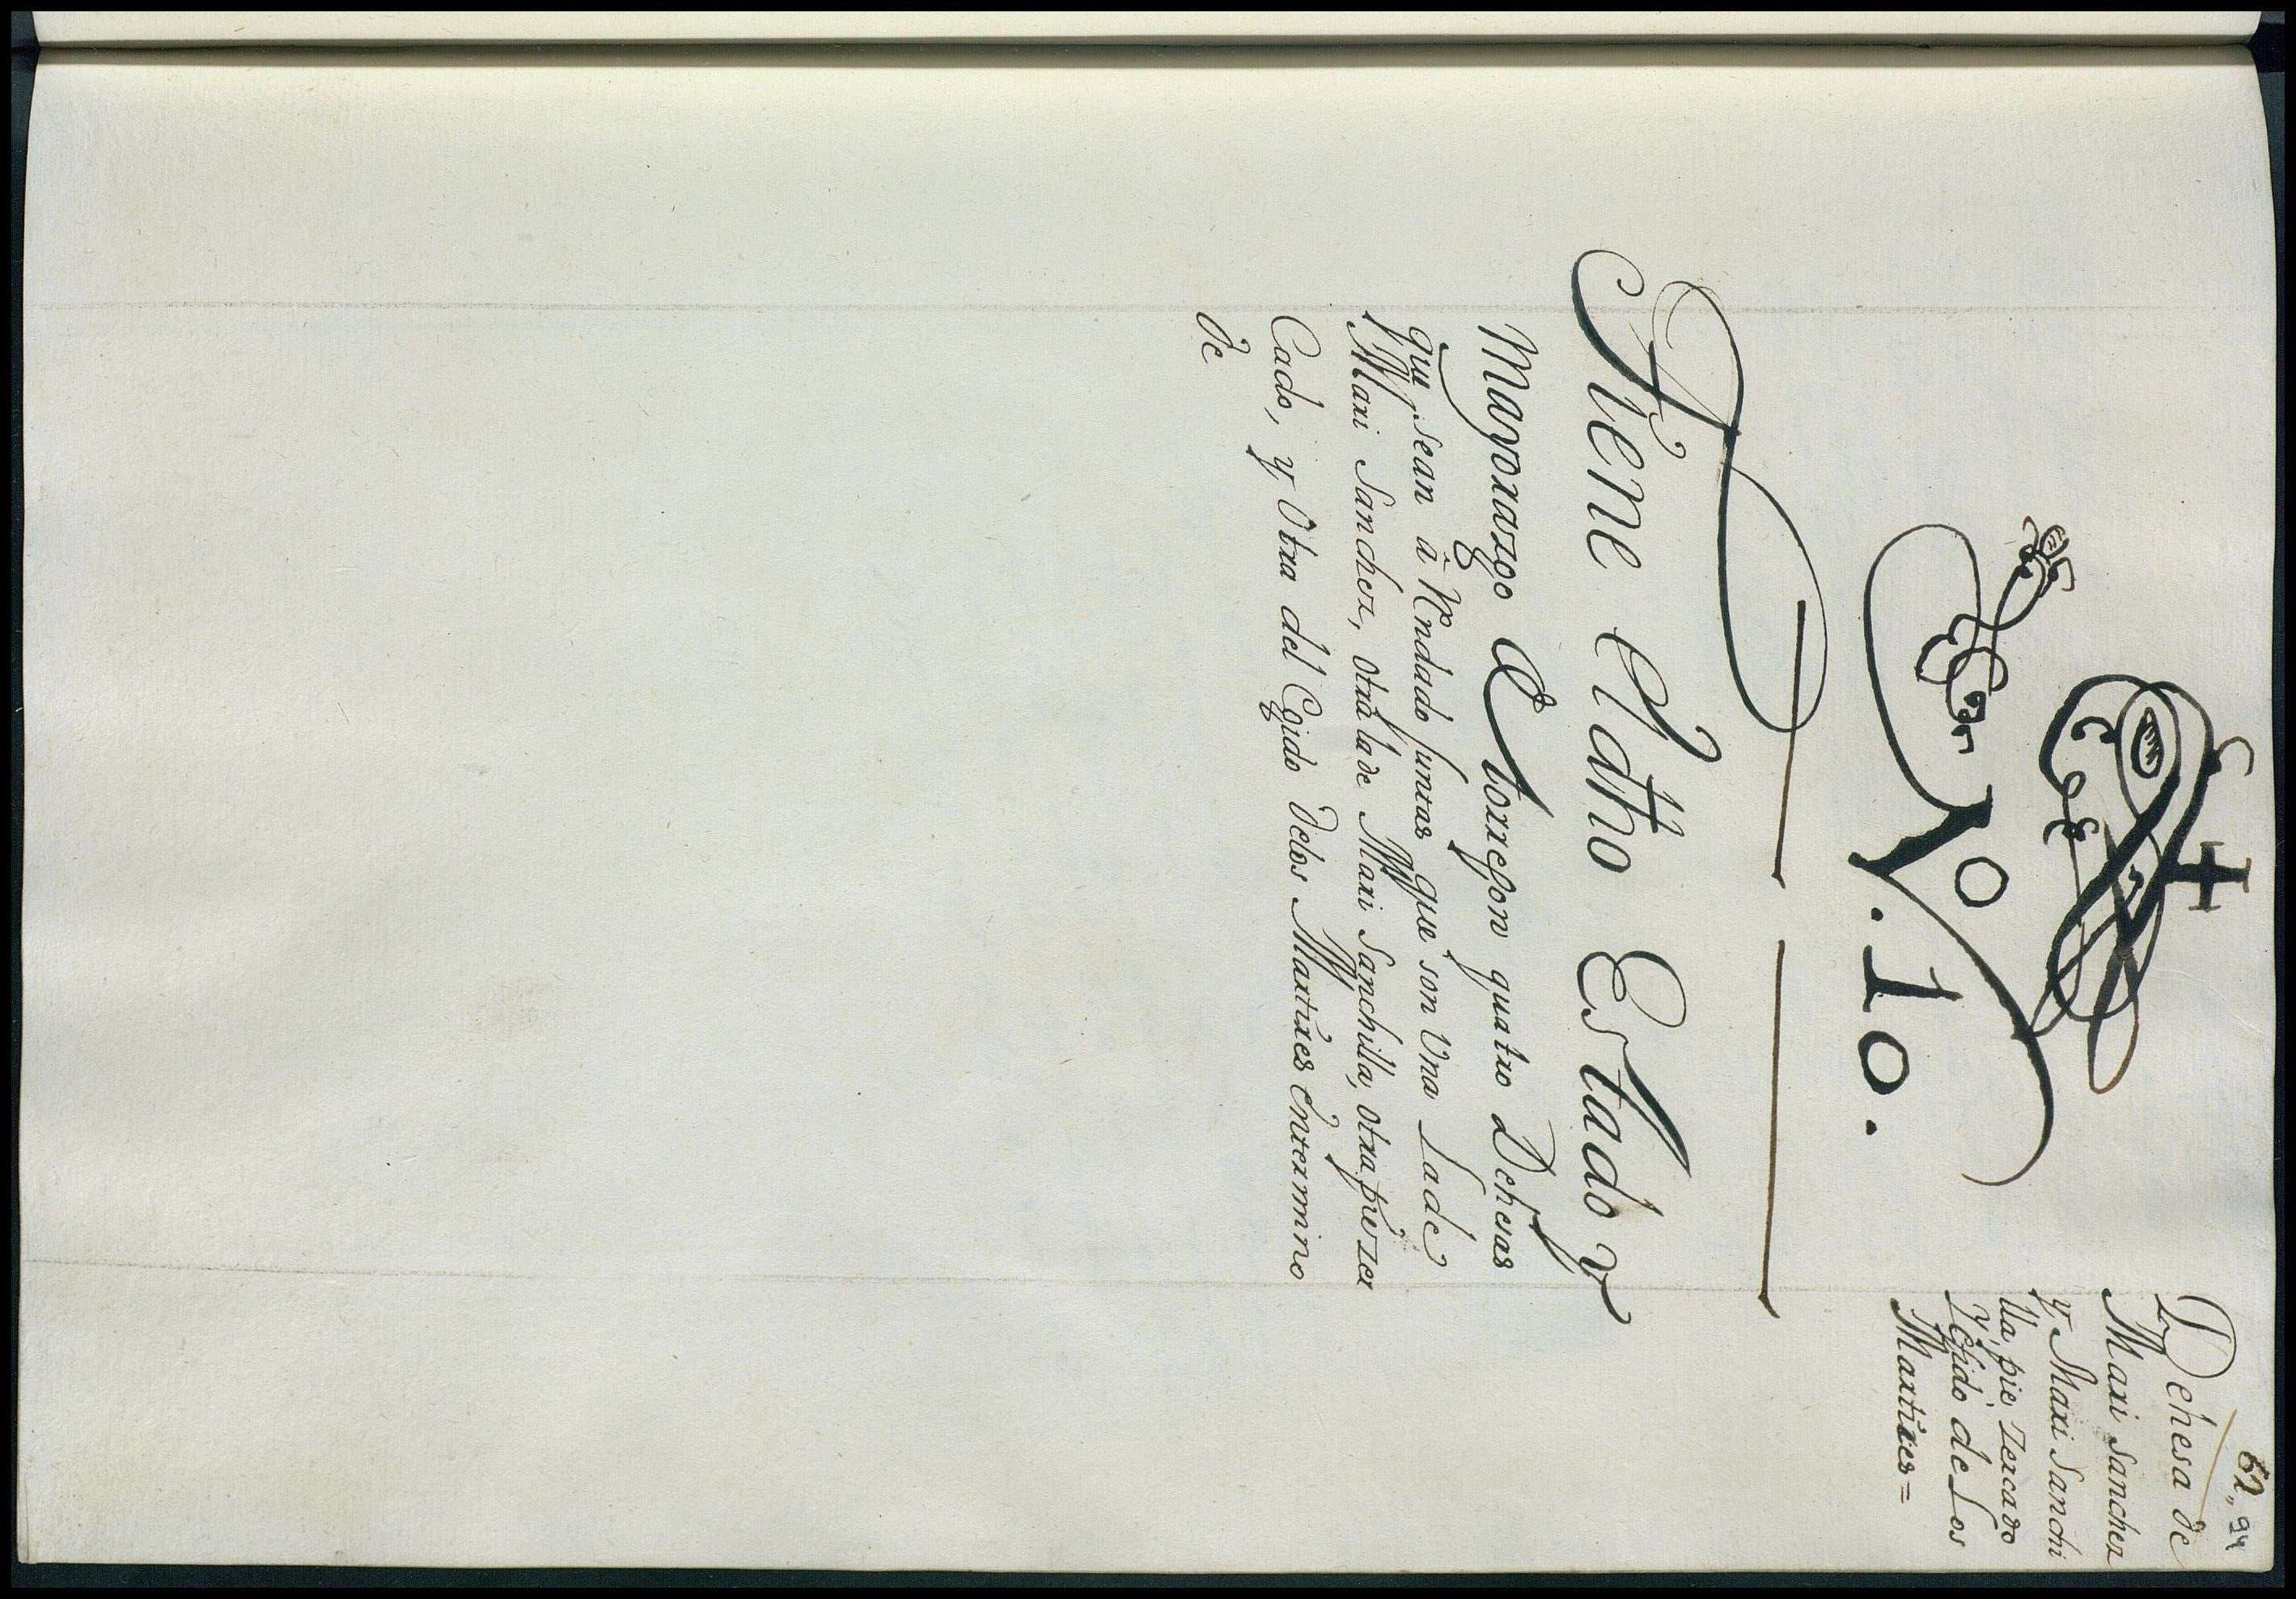 62,, 94
Dehesa de
Mari Sanchez
y Mari Sanchi
lla, pie zercado
y Egido de Los
Martires =
N.º 10.
Tiene el dho Estado y
Mayorazgo de torrejon quatro Dehesas
que sean â Rendado juntas que son Una La de
Mari Sanchez, otra la de Mari Sanchilla, otra pie zer
Cado, y Otra del Egido de los Martires en termino
de